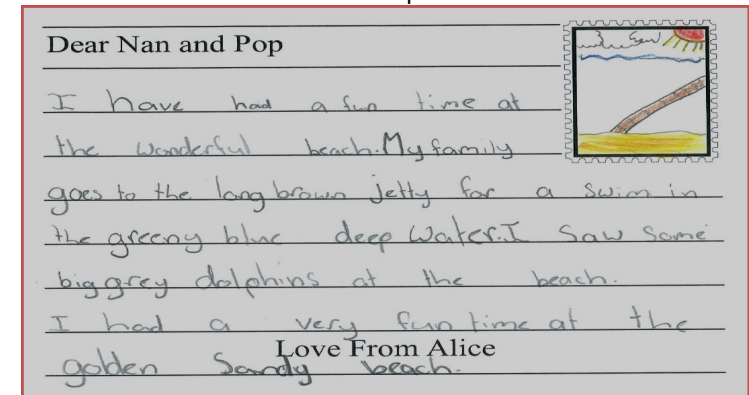 Dear Nan and Pop
I have had a fun time at
the wonderful beach. My family
goes to the long brown jetty for a swim in
the greeny blue deep water. I saw some
big grey dolphins at the beach.
I had a very fun time at the
Love From Alice
golden sandy beach.